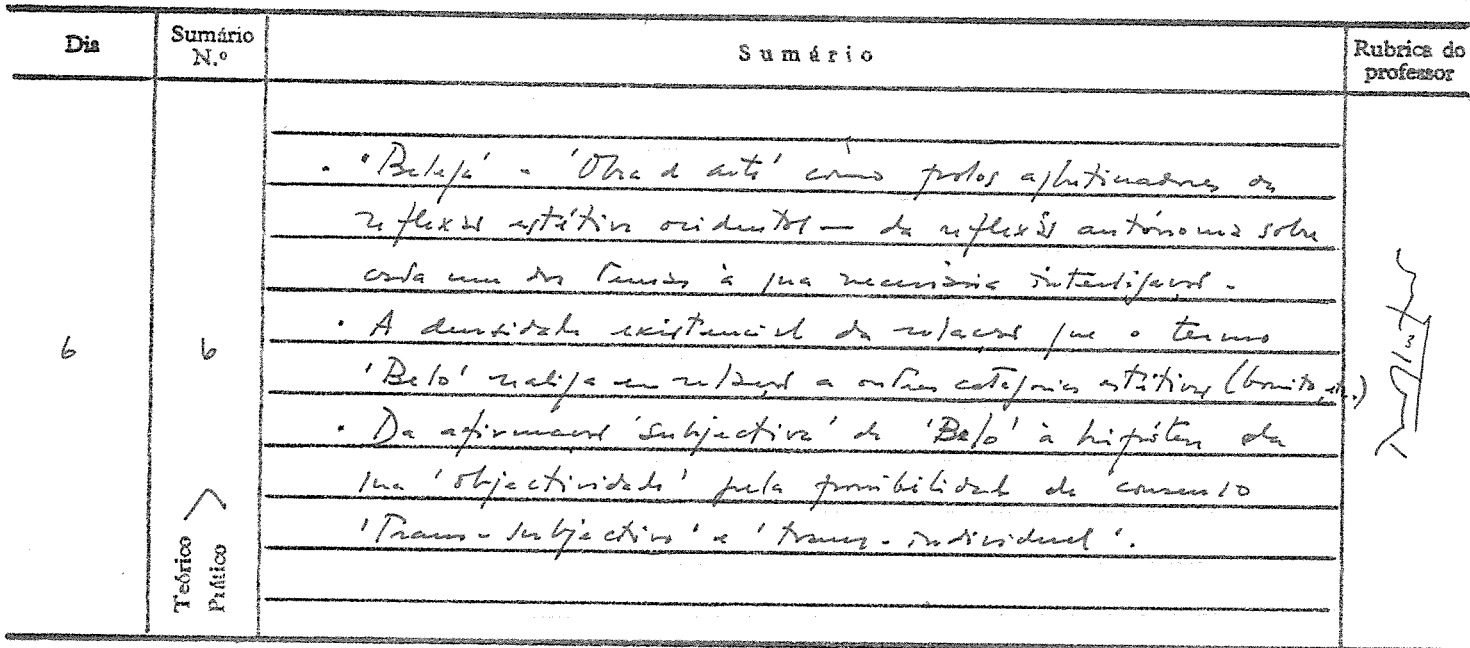 Dia
Sumário N.º
Sumário
Rubrica do professor
6
6
Teórico
Prático
. 'Beleza' e 'Obra de arte' como polos aglutinadores da
reflexão estética ocidental — da reflexão autónoma sobre
cada um dos temas à sua necessária interligação.
. A densidade existencial da relação que o termo
'Belo' realiza em relação a outras categorias estéticas (bonito, etc.)
. Da afirmação 'subjectiva' do 'Belo' à hipótese da
sua 'objectividade' pela possibilidade de consenso
'Trans-subjectivo' e 'trans-individual'.